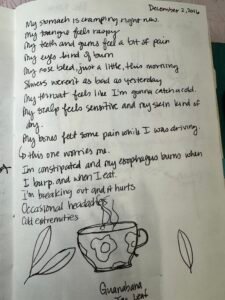 December 2, 2016
My stomach is cramping right now.
My toungue feels raspy
My teeth and gums feel a bit of pain
My eyes kind of burn
My nose bled, just a little, this morning
Shivers weren't as bad as yesterday
My throat feels like I'm gonna catch a cold.
My scalp feels sensitive and my skin kind of
dry
My bones felt some pain while I was driving
↳ this one worries me.
Im constipated and my esophagus burns when
I burp and when I eat.
I'm breaking out and it hurts
Occasional headaches
Cold extremities
Guanabana
Tea Leaf